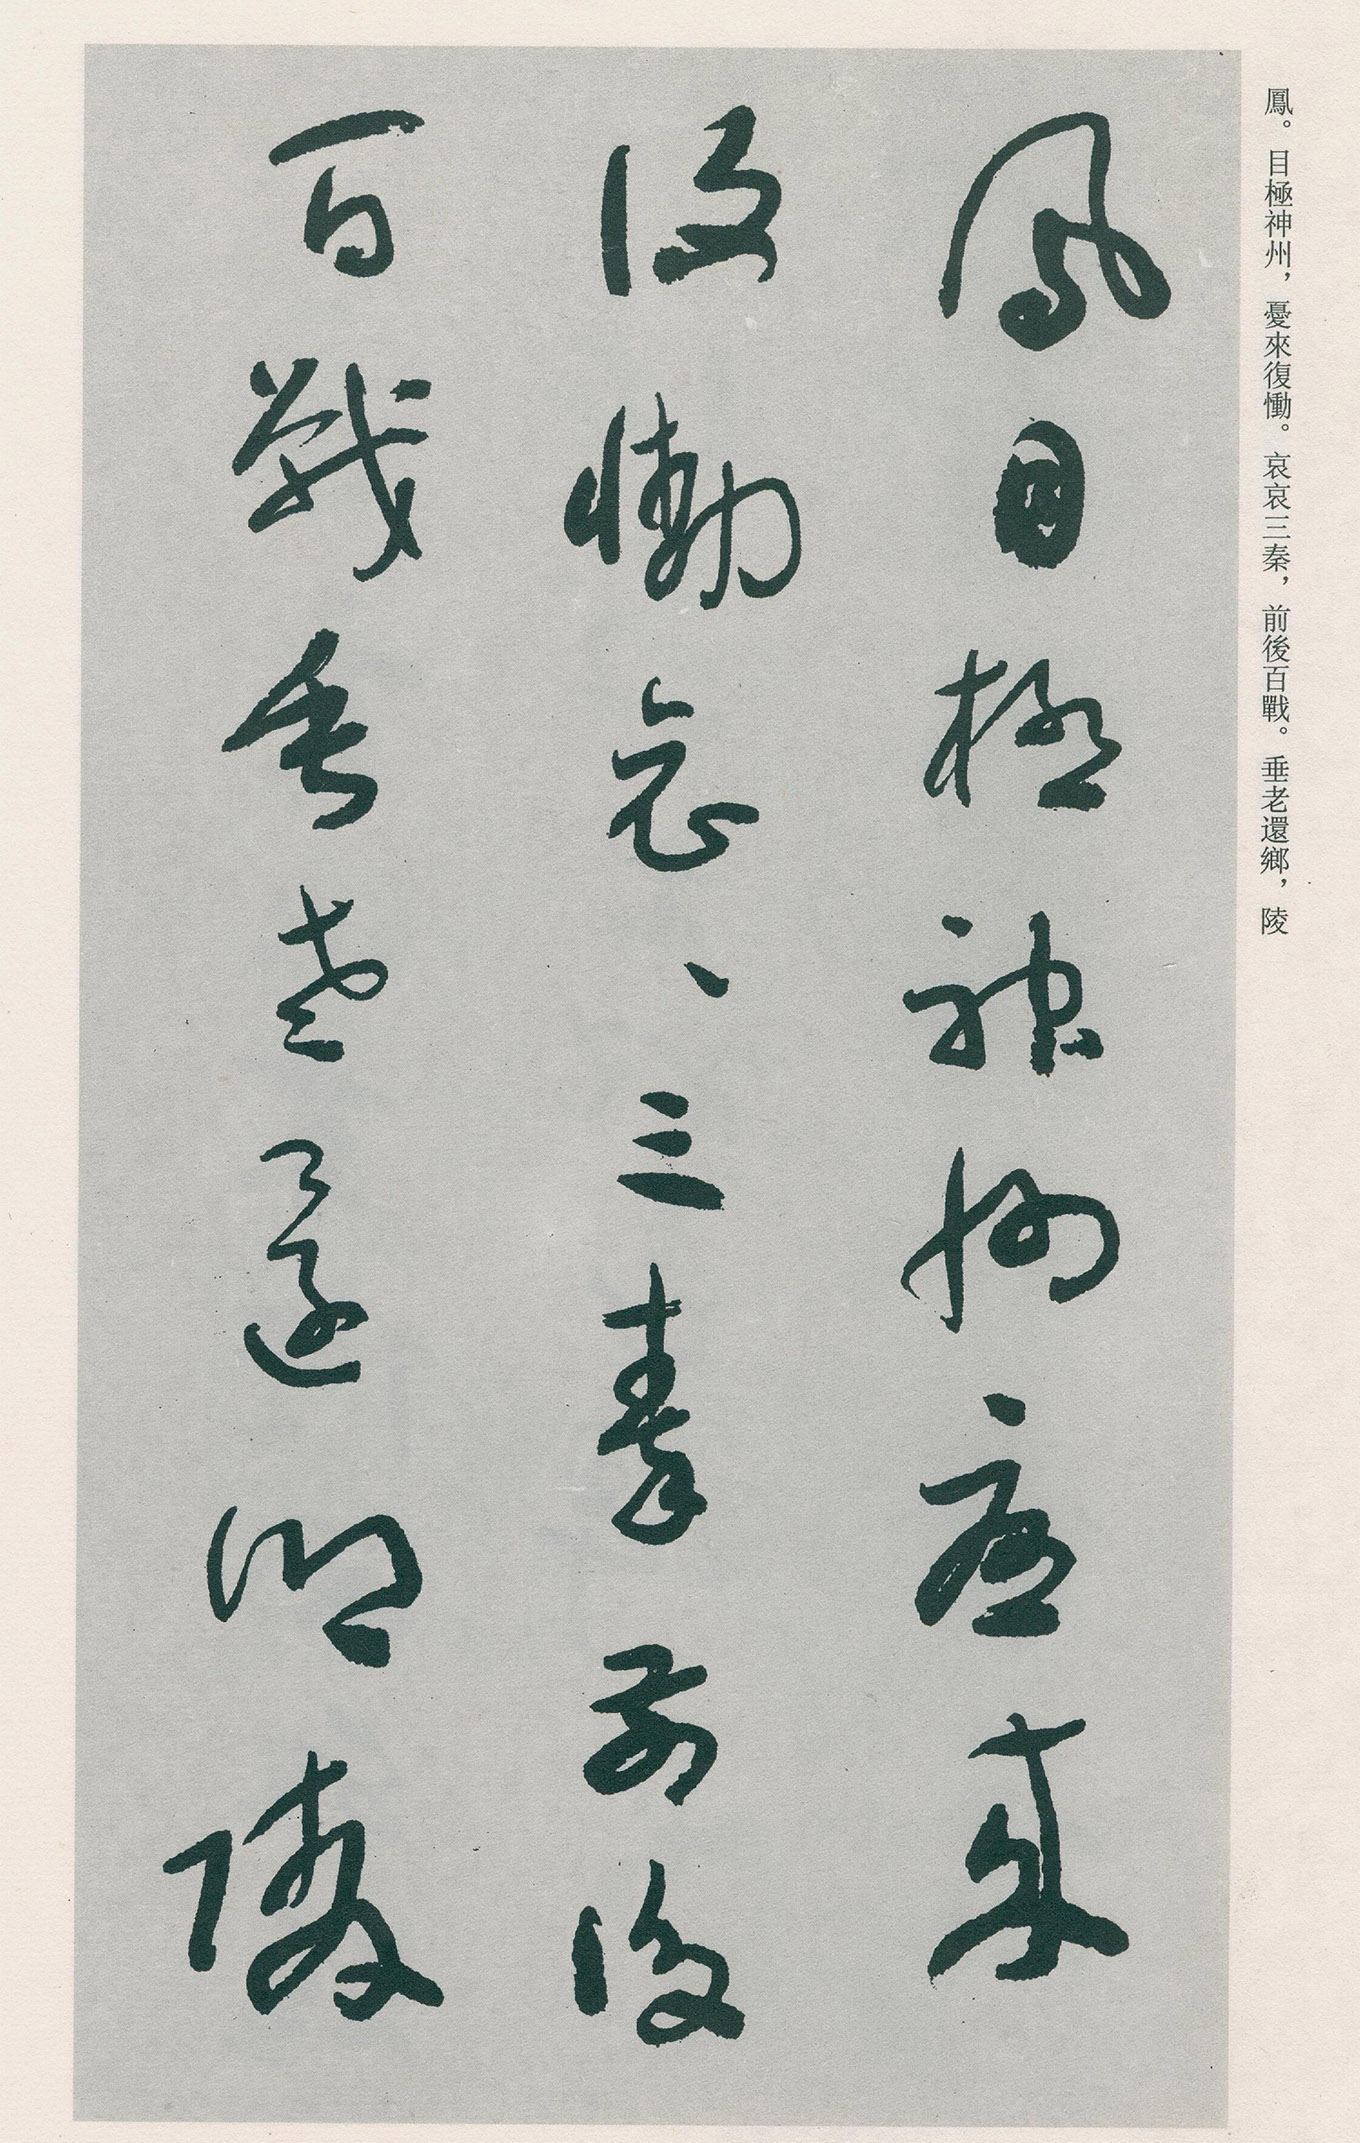 鳳。目極神州，憂來復慟。哀哀三秦，前後百戰。垂老還鄉，陵
鳳目極神州憂來
復慟哀、三秦前後
百戰垂老還鄉陵